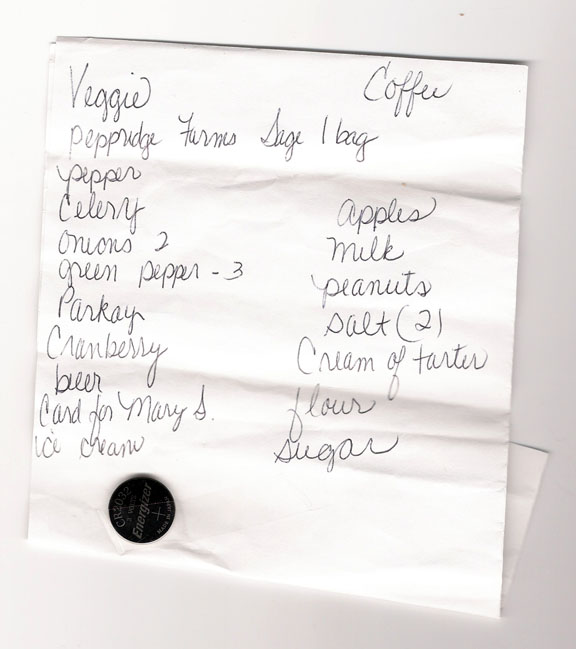 Veggie
Peppridge Farms Sage 1 bag
pepper
Celery
onions 2
green pepper - 3
Parkay
Cranberry
beer
Card for Mary S.
ice cream
Coffee
apples
Milk
peanuts
salt (2)
Cream of tarter
flour
sugar
CR2032
3 VOLTS
Energizer
+
MADE IN JAPAN